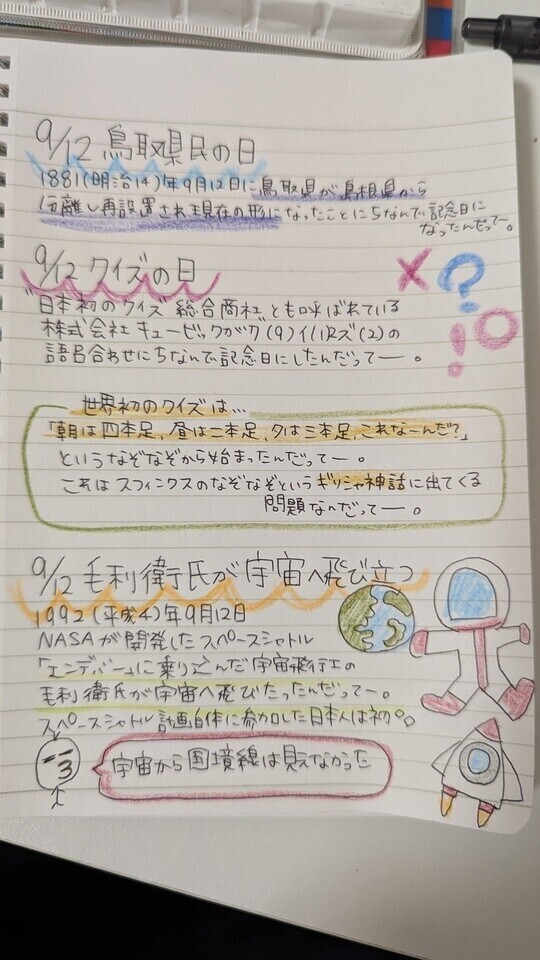 9/12 鳥取県民の日
1881(明治14)年9月12日に鳥取県が島根県から
分離し再設置され現在の形になったことにちなんで記念日に
なったんだってー。
9/12 クイズの日
"日本初のクイズ"総合商社とも呼ばれている
株式会社キュービックがク(9)イ(1)ズ(2)の
語呂合わせにちなんで記念日にしたんだってー。
×?!○
世界初のクイズは…
「朝は四本足、昼は二本足、夕は三本足、これなーんだ?」
というなぞなぞから始まったんだってー。
これはスフィンクスのなぞなぞというギリシャ神話に出てくる
問題なんだってー。
9/12 毛利衛氏が宇宙へ飛び立つ
1992(平成4)年9月12日
NASAが開発したスペースシャトル
「エンデバー」に乗り込んだ宇宙飛行士の
毛利衛氏が宇宙へ飛びたったんだってー。
スペースシャトル計画自体に参加した日本人は初。
宇宙から国境線は見えなかった